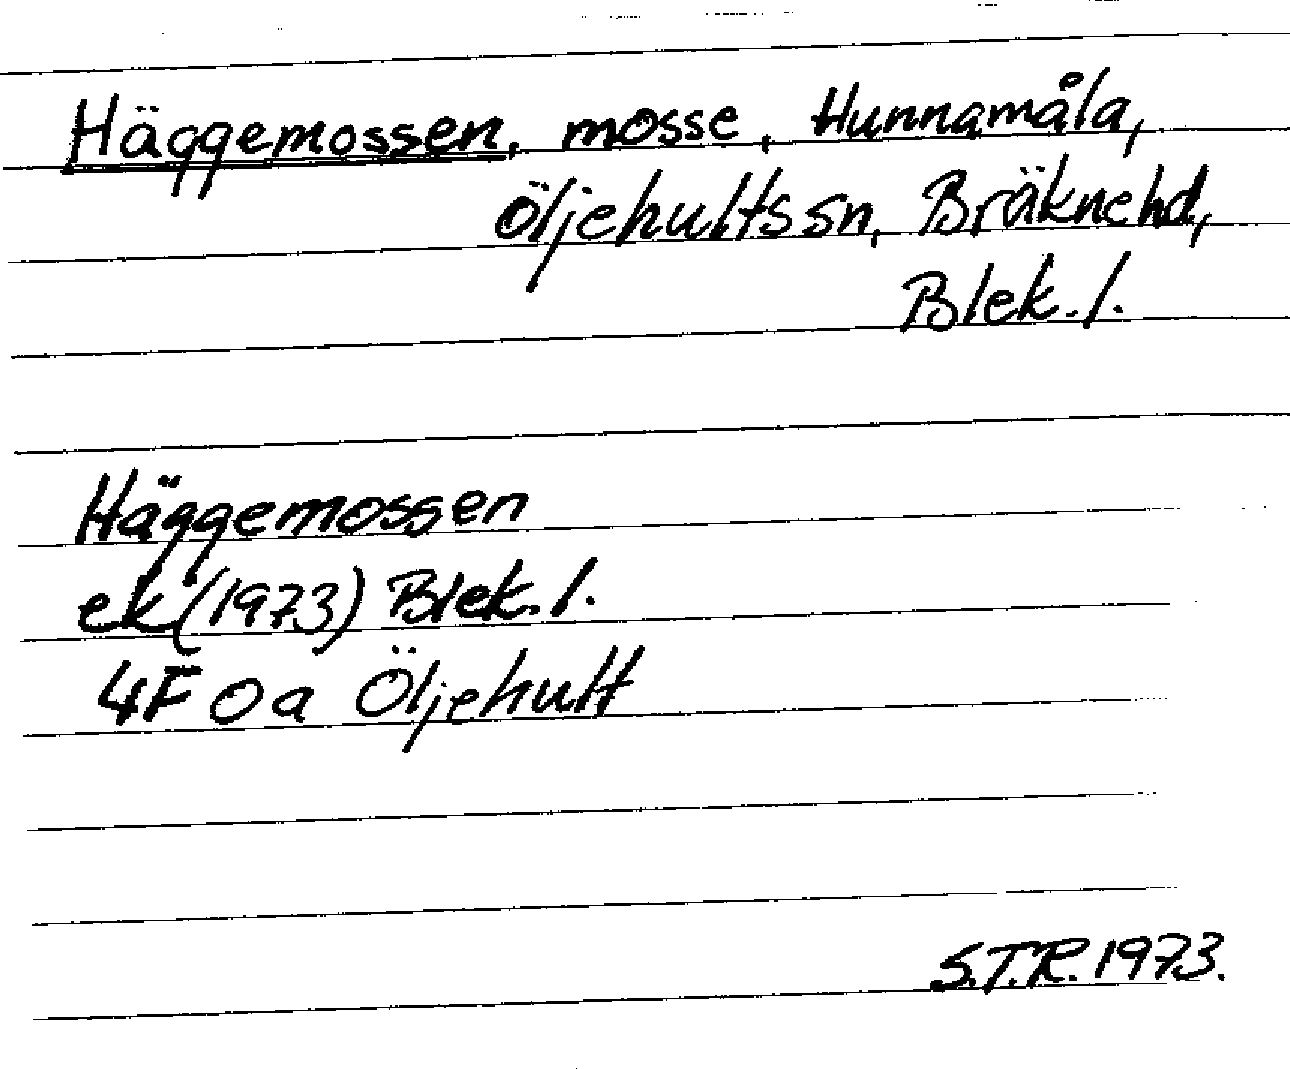 Häggemossen, mosse, Hunnamåla,
Öljehults sn, Bräkne hd,
Blek. l.
Häggemossen
ek (1973) Blek. l.
4F 0a Öljehult
S.T.R. 1973.